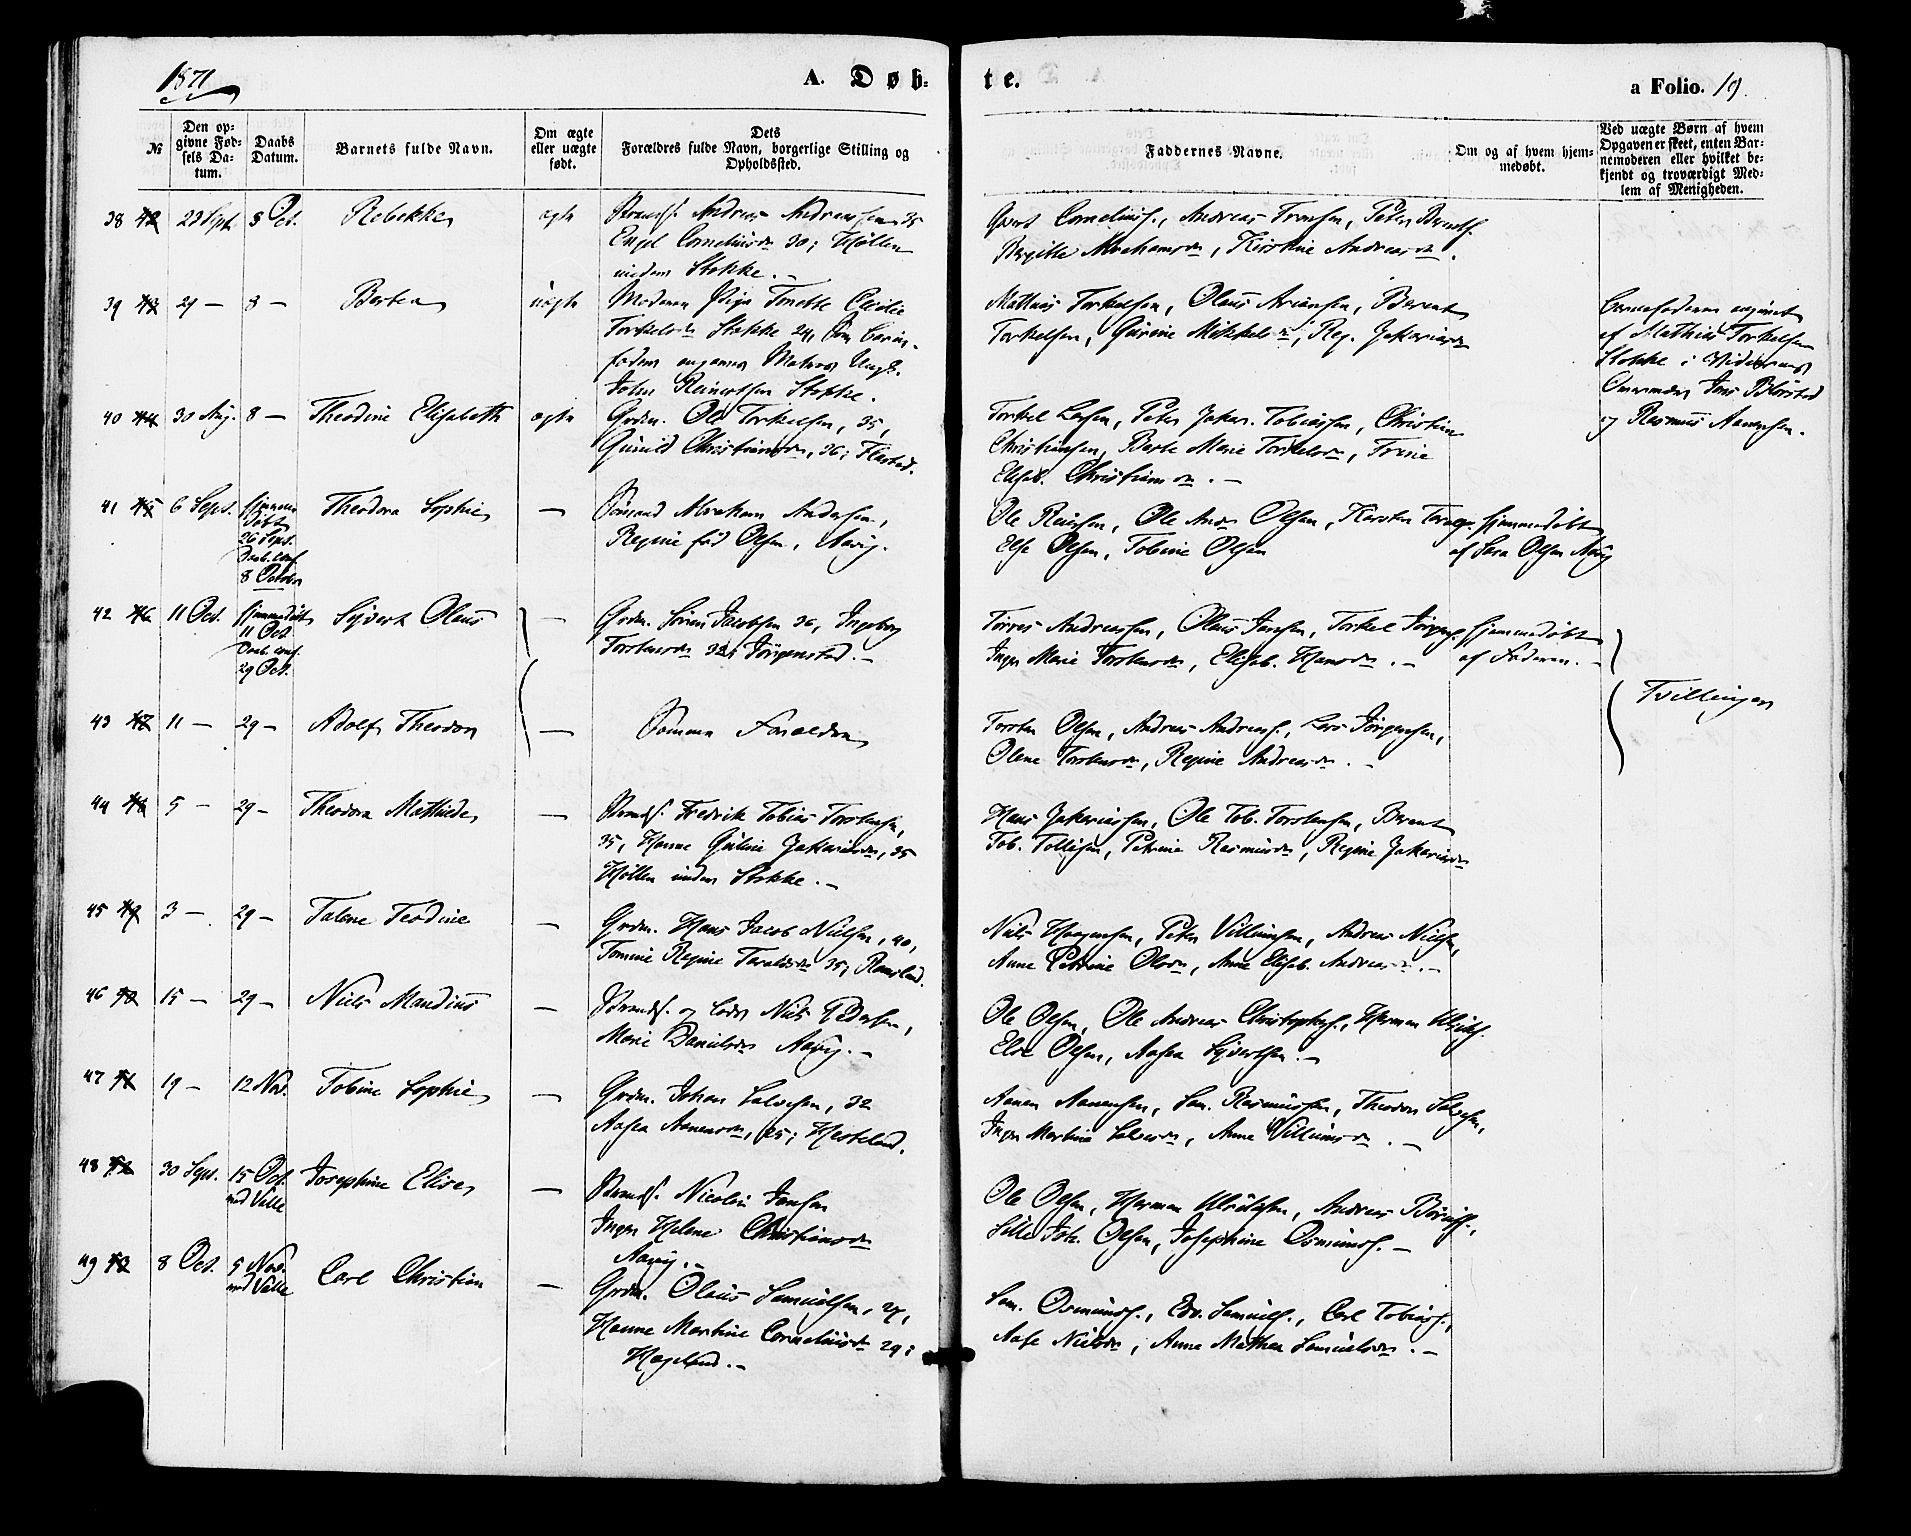 1871
A. Døb-
te.
a Folio. 19.
№
Den op-
givne Fød-
sels Da-
tum.
Daabs
Datum.
Barnets fulde Navn.
Om ægte
eller uægte
født.
Dets
Forældres fulde Navn, borgerlige Stilling og
Opholdssted.
Faddernes Navne.
Om og af hvem hjem-
medøbt.
Ved uægte Børn af hvem
Opgaven er skeet, enten Bar-
nemoderen eller hvilket be-
kjendt og troværdigt Med-
lem af Menigheden.
38 42 22 Sept. 8 Oct. Rebekka ægte
Andreas Andreassen 35
Engel Corneliusdr 30; Høllen
under Stokke.
Corneliuss., Andreas Tronsen, Peter Berents.
Birgitte Abrahamsdr, Kirstine Andreasdr.
39 43 29 — 8 — Bertea uægte
Moderen Pige Tonette Cecilie
Torkelsdr Stokke 24, Som Barne-
fader angivet Matros Ungk.
John Reinertsen Stokke.
Mathias Torkelsen, Olaus Ariansen, Berent
Torkelsen, Gurine Mikkelsdr, Reg. Zakariasdr
Barnefaderen angivet
af Mathias Torkelsen
Stokke i Vidners
Jens Blørstad
og Rasmus Aanensen.
40 44 30 Aug. 8 — Theodine Elisabeth ægte
Grdm. Ole Torkelsen, 35,
Gunild Christiansdr, 36; Flastad.
Torkel Larsen, Peter Zakar. Tobiassen, Christian
Christiansen, Berte Marie Torkelsdr, Trine
Elisab. Christiansdr. —
41 45 6 Sept. Hjemme-
døbt
26 Sept.
Daab. conf.
8 October
Theodora Sophie —
Sømand Abraham Andersen,
Regine fød Olsen, Aavig.
Ole Reiersen, Ole Andr. Olsen, Karsten
Else Olsen, Tobine Olsen
Hjemmedøbt
af Sara Olsen Aavig
42 46 11 Oct. Hjemmedøbt
11 Oct
Daab. conf.
29 Oct.
Sijvert Olaus —
Grdm. Søren Jacobsen 36, Ingeborg
Torstensdr 32; Jörgenstad. —
Torres Andreassen, Olaus Jansen, Torkel Jörgens.
Inger Marie Torstensdr, Elisab. Hansdr. —
Hjemmedøbt
af Faderen. —
43 47 11 — 29 — Adolf Theodor —
Samme Forældre
Torsten Olsen, Andreas Andreass., Lars Jörgensen,
Olene Torstensdr, Regine Andreasdr. —
Tvillinger
44 48 5 — 29 — Theodora Mathilde —
Fredrik Tobias Torstensen,
35, Hanne Guline Zakariasdr, 35
Høllen under Stokke. —
Hans Zakariassen, Ole Tob. Torstensen, Berent
Tob. Tollefsen, Petrine Rasmusdr, Regine Zakariasdr
45 49 3 — 29 — Talene Teodine —
Grdm. Hans Jacob Nielsen, 40,
Tomine Regine Taraldsdr 35;
Niels Haagensen, Peter Villumsen, Andreas Nielsen,
Anne Petrine Olsdr, Anne Elisab. Andreasdr. —
46 50 15 — 29 — Niels Mandius —
og Lods Niels Pedersen,
Marie Danielsdr Aavig. —
Ole Olsen, Ole Andreas Christophers., Herman Ulriks.
Else Olsen, Aasea Sijvertsen. —
47 51 19 — 12 Nov. Tobine Sophie —
Grdm. Johan Salvesen, 32
Aasea Aanensdr, 25; Hesteland.
Aanen Aanensen, Sam. Rasmussen, Theodor Salvesen,
Inger Martine Salvesdr, Anne Villumsdr. —
48 52 30 Sept. 15 Oct.
ved Valle
Josephine Elise —
Nicolai Jansen
Inger Helene Christiansdr
Aavig. —
Ole Olsen, Herman Ulriksen, Andreas
Sille Joh. Olsen, Josephine Osmunds. —
49 53 8 Oct. 5 Nov.
ved Valle
Carl Christian —
Grdm. Olaus Samuelsen, 27,
Hanne Martine Corneliusdr 29;
Hageland. —
Sam. Osmunds., Edv. Samuels., Carl Tobias.,
Aase Nielsdr, Anne Mathea Samuelsdr. —